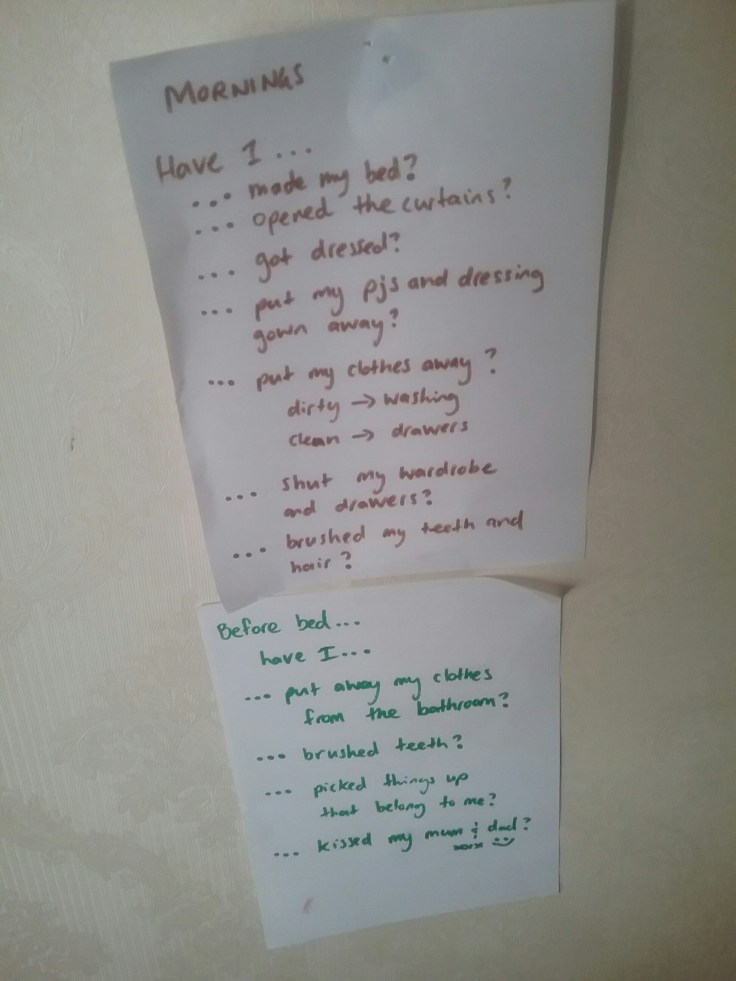 MORNINGS
Have I ...
... made my bed?
... opened the curtains?
... got dressed?
... put my pjs and dressing
gown away?
... put my clothes away?
dirty → washing
clean → drawers
... shut my wardrobe
and drawers?
... brushed my teeth and
hair?
Before bed...
have I...
... put away my clothes
from the bathroom?
... brushed teeth?
... picked things up
that belong to me?
... kissed my mum & dad?
xoxox